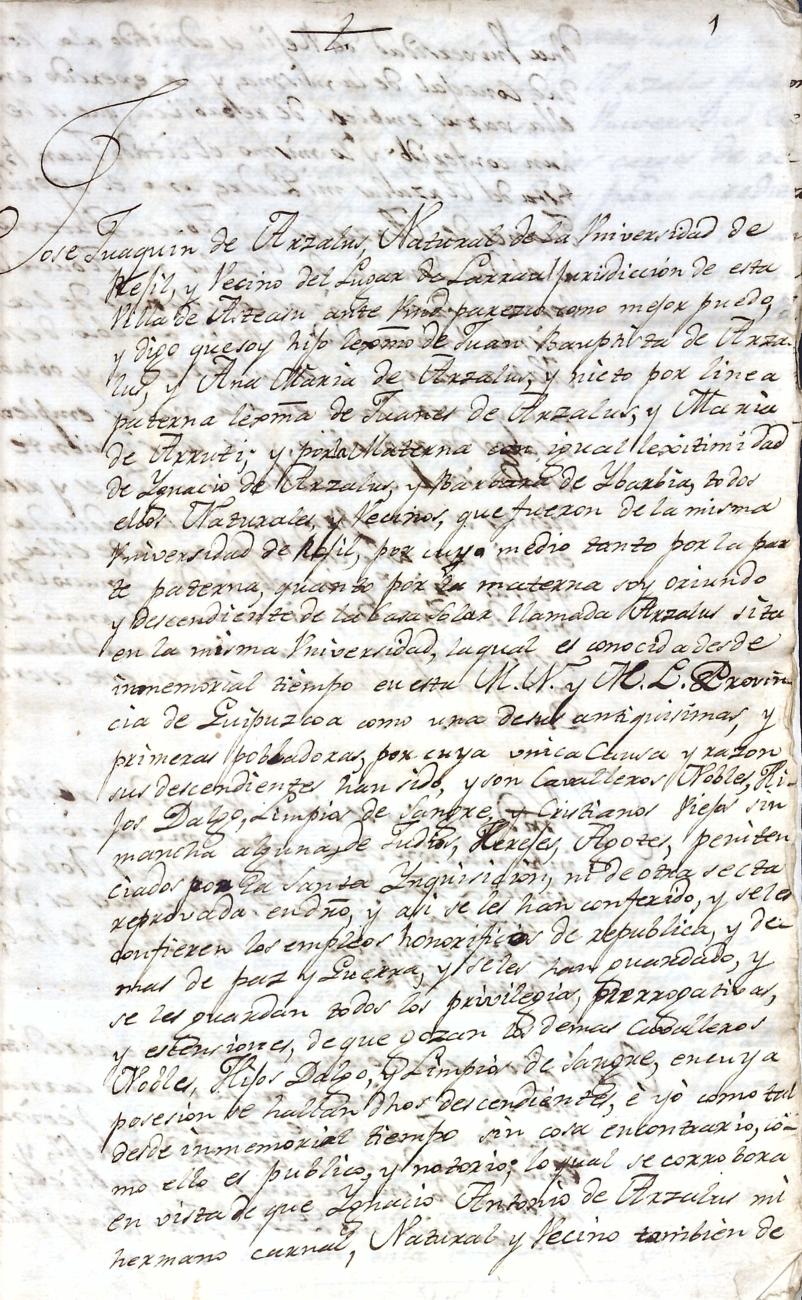 1
Jose Juaquin de Arzalus, Natural de la Universidad de
Resil, y Vecino del Lugar de Larraul Juridicción de esta
Villa de Asteasu ante Vmd parezco como mejor puedo,
y digo que soy hijo lexmo de Juan Bauptista de Arza-
lus, y Ana Maria de Arzalus, y nieto por linea
paterna lexma de Juanes de Arzalus, y Maria
de Arruti; y por la Materna con igual lexitimidad
de Ygnacio de Arzalus, y Barbara de Ybarbia, todos
ellos Naturales, y Vecinos, que fueron de la misma
Universidad de Resil, por cuyo medio tanto por la par
te paterna, quanto por la materna soy oriundo
y descendiente de la Casa Solar llamada Arzalus sita
en la misma Universidad, la qual es conocida desde
inmemorial tiempo en esta M. N. y M. L. Provin-
cia de Guipuzcoa como una de sus antiquisimas, y
primeras pobladoras, por cuya unica Causa y razon
sus descendientes han sido, y son Cavalleros Nobles, Hi-
jos Dalgo, Limpios de Sangre, y Cristianos Viejos sin
mancha alguna de Judios, Herejes, Agotes, peniten
ciados por la Santa Ynquisición, ni de otra secta
reprovada en dro, y asi se les han conferido, y se les
confieren los empleos honorificos de republica, y de-
mas de paz y Guerra, y se les han guardado, y
se les guardan todos los privilegios, prerrogativas,
y estensiones, de que gozan los demas Caballeros
Nobles, Hijos Dalgo, y Limpios de Sangre, en cuya
posesion se hallan dhos descendientes, è yò como tal
desde inmemorial tiempo sin cosa en contrario, co-
mo ello es publico, y notorio; lo qual se corrobora
en vista de que Ygnacio Antonio de Arzalus mi
hermano carnal, Natural y Vecino tambien de